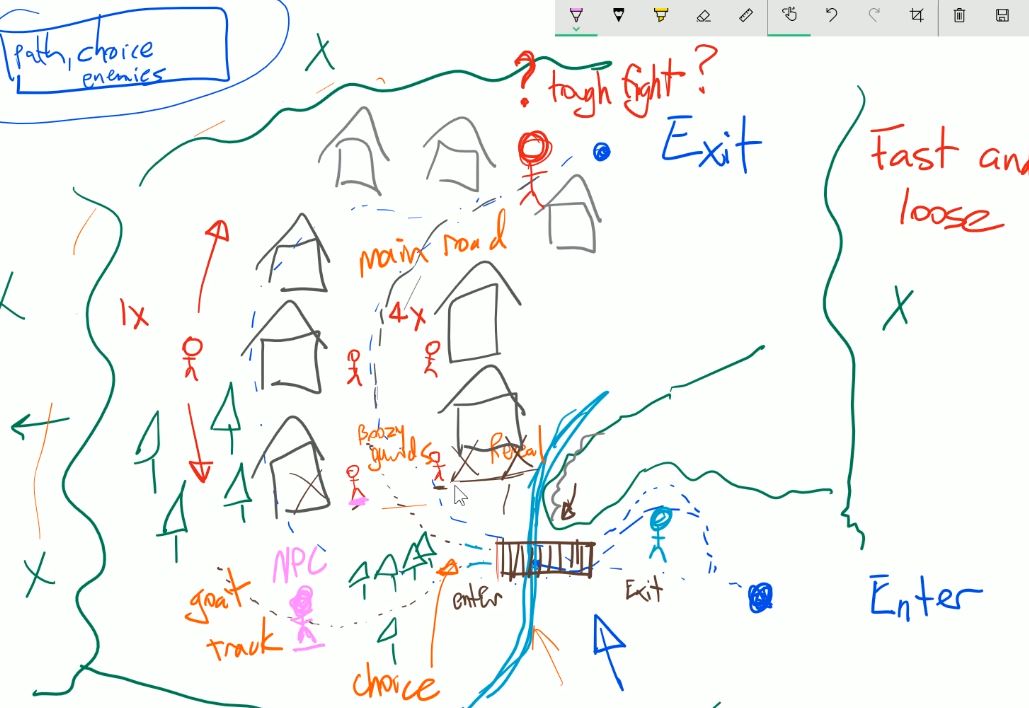 path, choice
enemies
? tough fight ?
Exit
Fast and
loose
main road
1x
4x
Boozy
guards
Reveal
NPC
goat
track
enter
Exit
Enter
choice